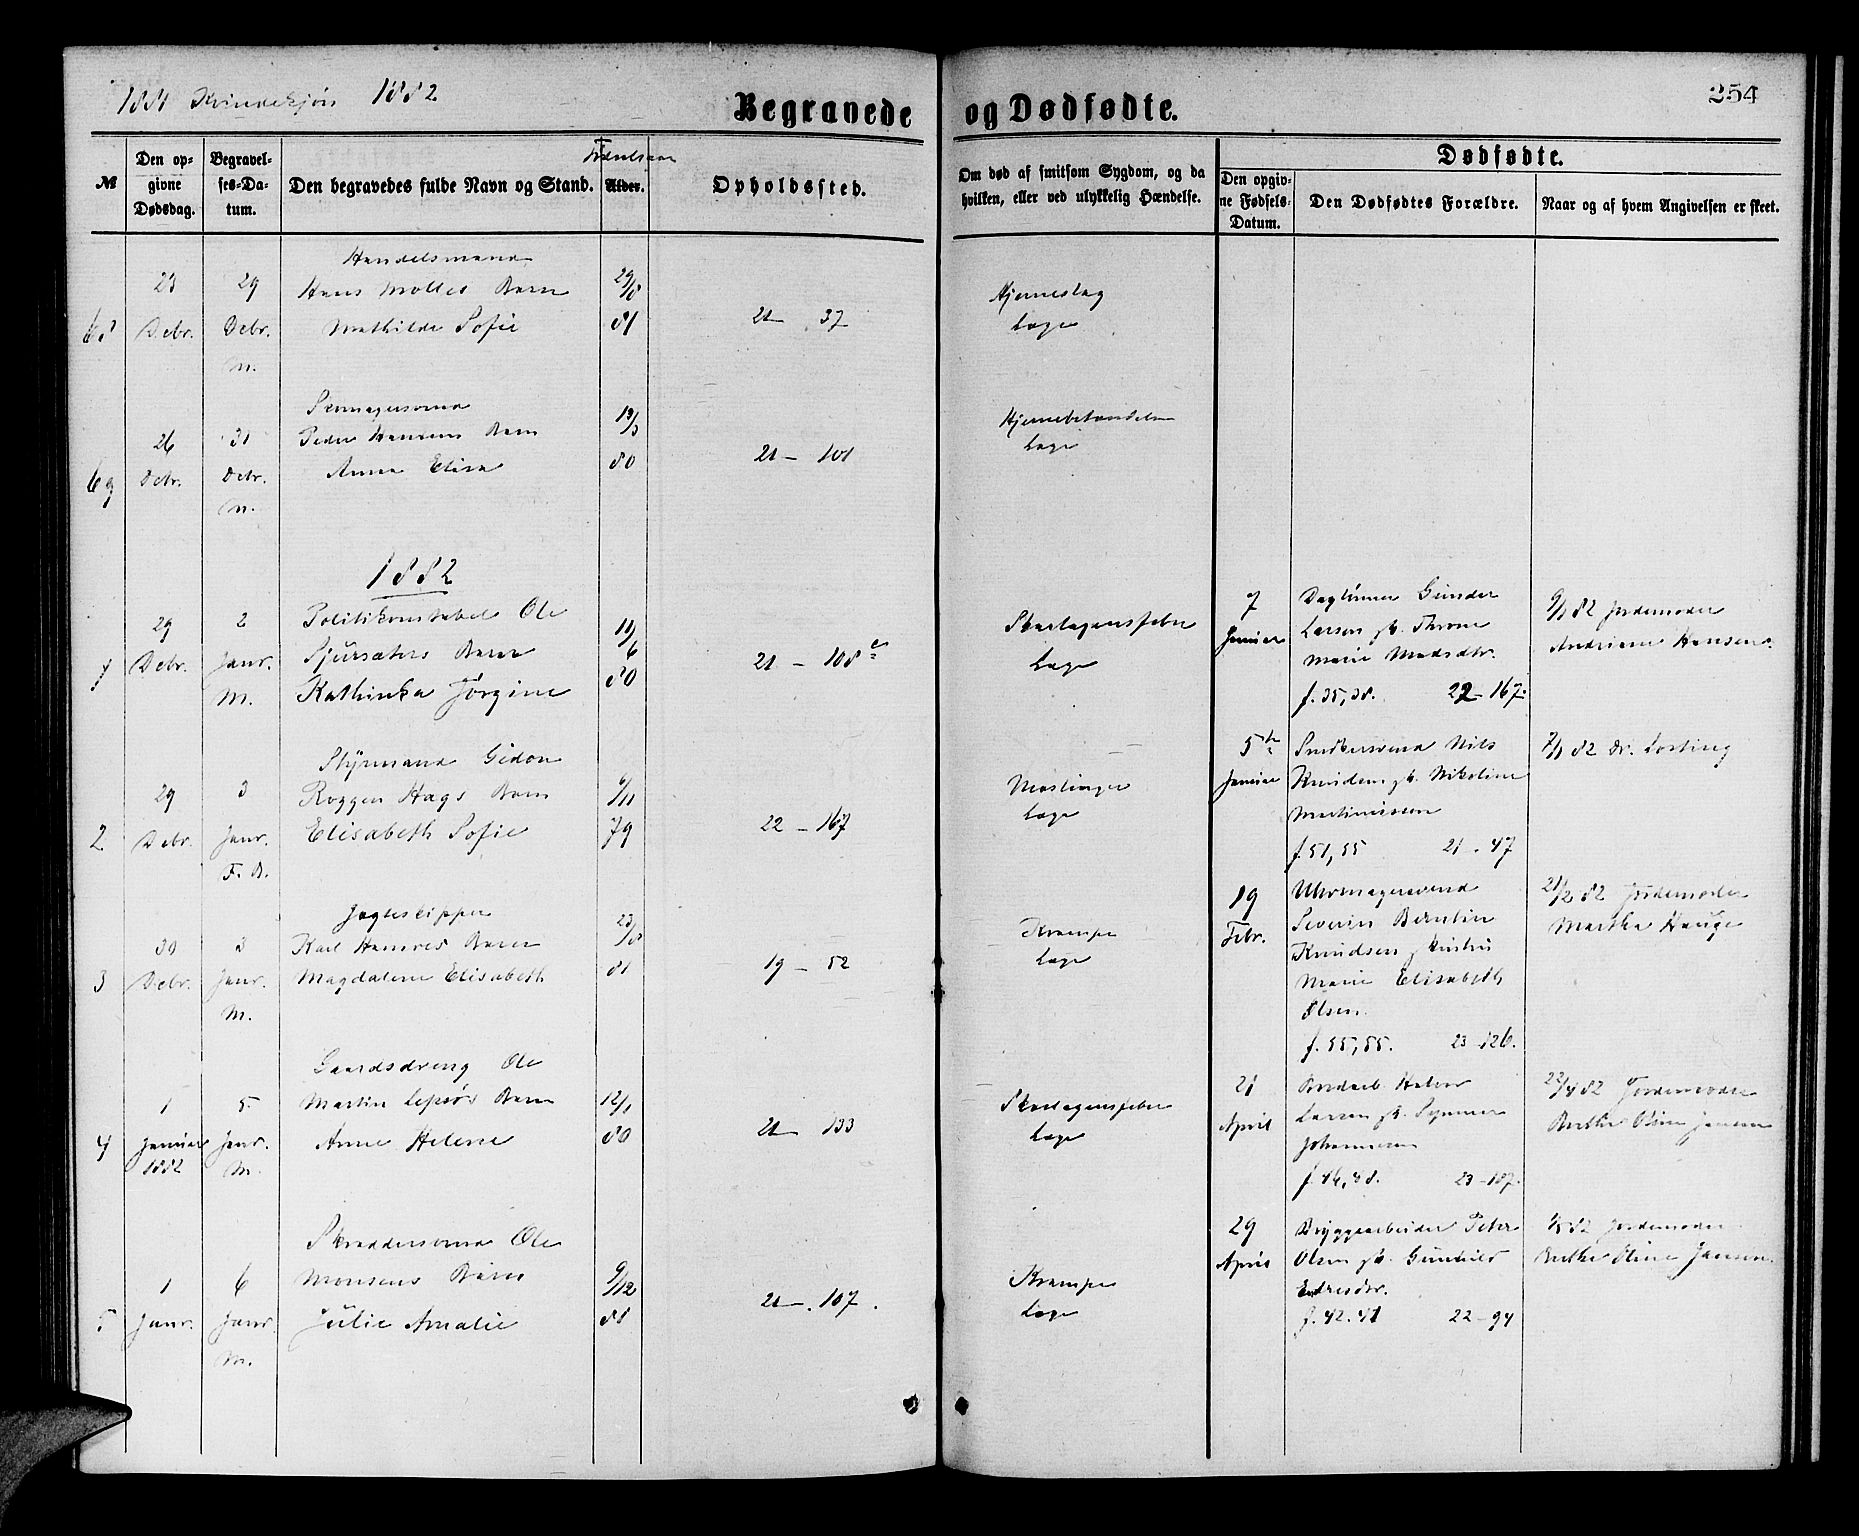 1881 Kvindekjøn 1882
Begravede og Dødfødte.
254
№
Den opgivne Dødsdag.
Begravelses-Datum.
Den begravedes fulde Navn og Stand.
Fødselsaar
Alder.
Opholdssted.
Om død af smitsom Sygdom, og da hvilken, eller ved ulykkelig Hændelse.
Dødfødte.
Den opgivne Fødsels-Datum.
Den Dødfødtes Forældre.
Naar og af hvem Angivelsen er skeet.
68
23 Debr.
29 Debr. M.
Handelsmand
Hans Moltes Barn
Mathilde Sofie
29/8 81
21 — 37
Hjerneslag
Læge
69
26 Debr.
31 Debr. M.
Skomagersvend
Peder Hansens Barn
Anna Elisa
80
21 — 101
Hjernebetændelse
Læge
1882
1
29 Debr.
2 Janr. M.
Politikonstabel Ole
Sjursæters Barn
Kathinka Jørgine
11/6 80
21 — 108
Skarlagensfeber
Læge
2
29 Debr.
3 Janr. F. B.
Styrmand Gideon
Roggen Hags Barn
Elisabeth Sofie
6/11 79
22 — 167
Meslinger
Læge
3
30 Debr.
3 Janr. M.
Jagteskipper
Karl Hanses Barn
Magdalene Elisabeth
23/8 81
19 — 52
Krampe
Læge
4
1 Januar 1882
5 Janr. M.
Gaardsdreng Ole
Martin Lepsøs Barn
Anne Helene
12/1 80
21 — 133
Skarlagensfeber
Læge
5
1 Janr.
6 Janr. M.
Skræddersvend Ole
Monsens Barn
Julie Amalie
9/12 81
21 — 107.
Krampe
Læge
7 Januar
Daglønner Gunder
Larsen gb. Throne
Marie Madsdtr.
f. 35, 38. 22 — 167.
9/1 82 Jordemoder
Andriane Hansen.
5te Januar
Snedkersvend Nils
Knudsen gb. Nikoline
Martinussen
f. 51, 55 21 — 47
7/1 82 Dr. Losting
19 Febr.
Uhrmagersvend
Severin Berntin
Knudsen gb.
Marie Elisabeth
Olsen.
f. 55, 55. 23 — 126.
21/2 82 Jordemoder
Martha Hauge
21 April
Larsen gb. Synneve
Johannesen
f. 46, 48. 23 — 107.
22/4 82 Jordemoder
Berthe Oline Jansen
29 April
Bryggearbeider Peter
Olsen gb. Gunhild
Endresdtr.
f. 42. 41 22 — 94
82 Jordemoder
Berthe Oline Jansen.